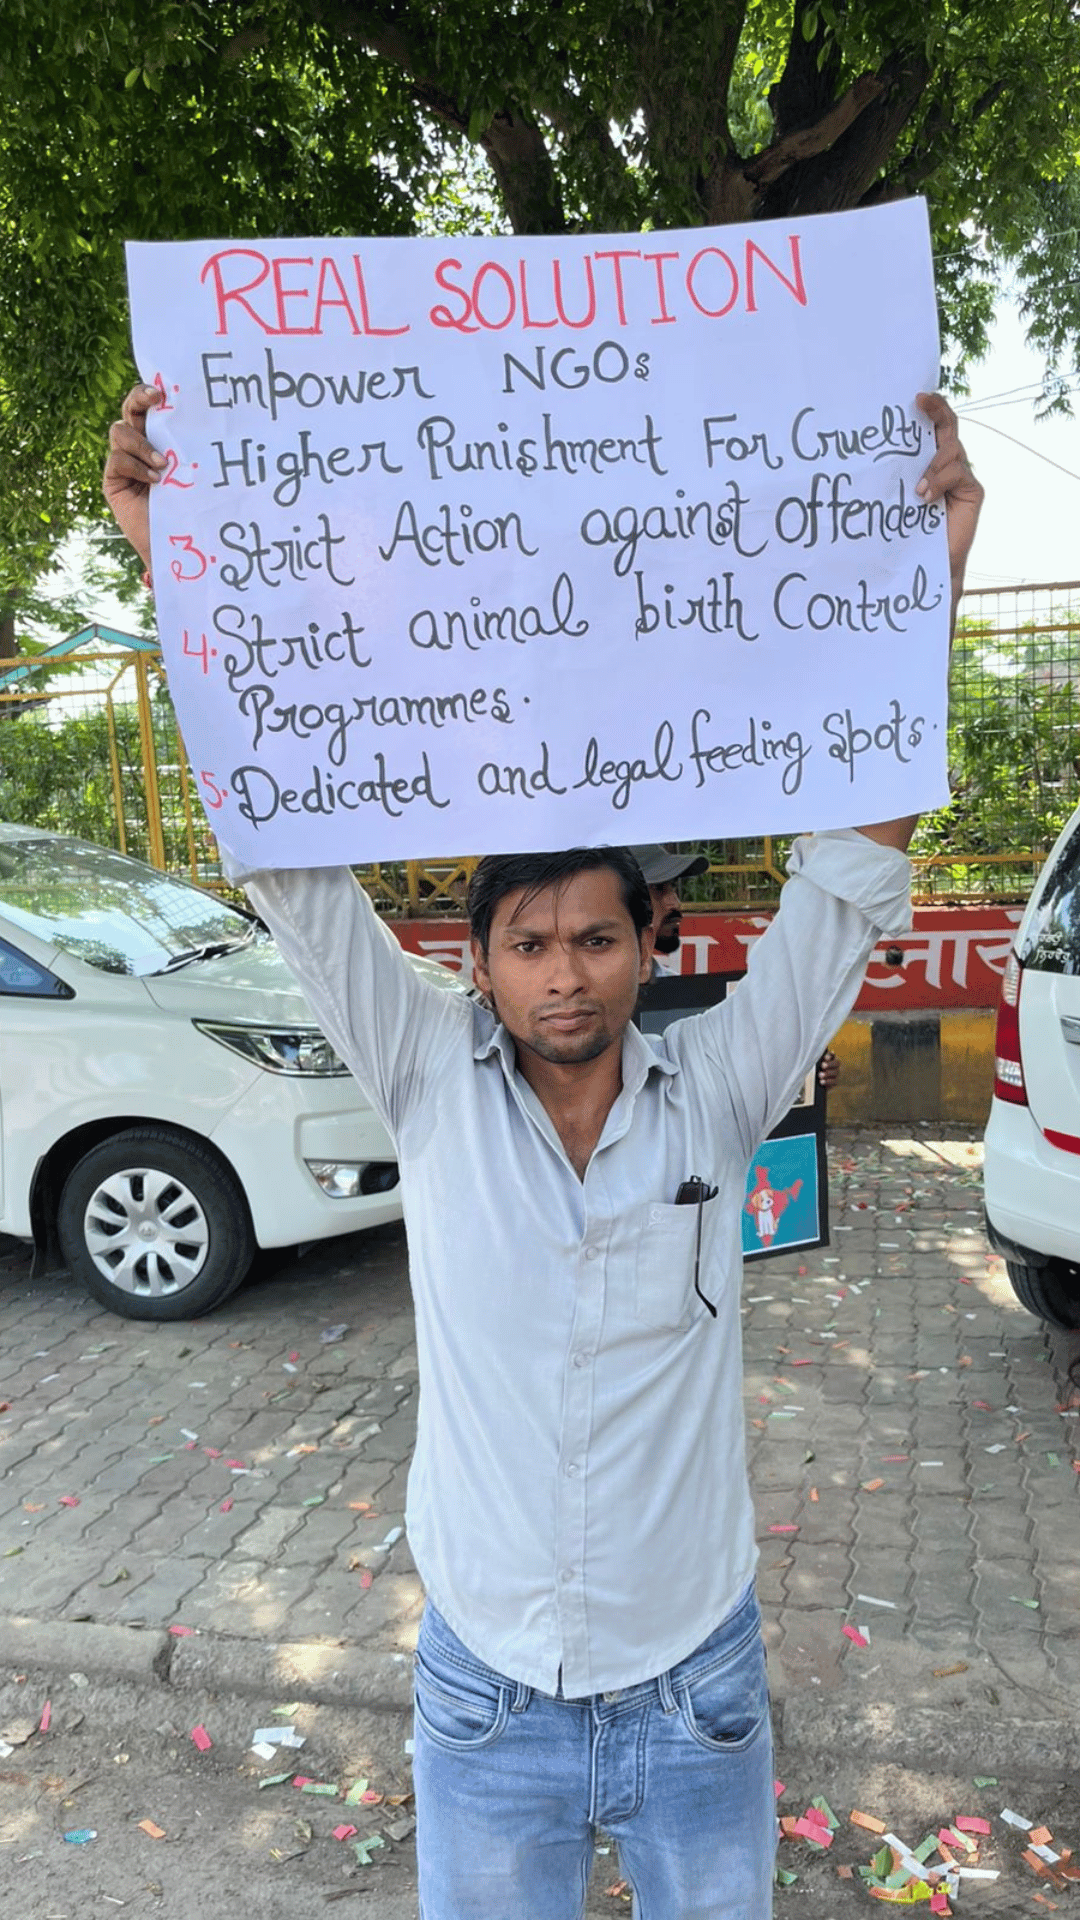 REAL SOLUTION
1. Empower NGOs
2. Higher Punishment For Cruelty.
3. Strict Action against offenders.
4. Strict animal birth Control
Programmes.
5. Dedicated and legal feeding Spots.